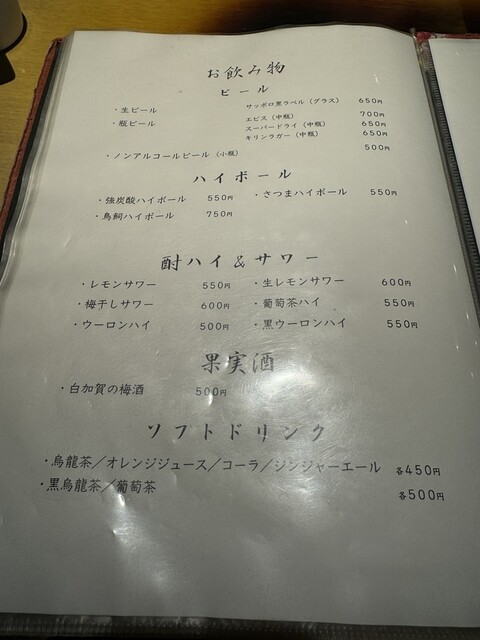 お飲み物
ビール
・生ビール サッポロ黒ラベル（グラス） 650円
・瓶ビール エビス（中瓶） 700円
スーパードライ（中瓶） 650円
キリンラガー（中瓶） 650円
・ノンアルコールビール（小瓶） 500円
ハイボール
・強炭酸ハイボール 550円 ・さつまハイボール 550円
・鳥飼ハイボール 750円
酎ハイ＆サワー
・レモンサワー 550円 ・生レモンサワー 600円
・梅干しサワー 600円 ・葡萄茶ハイ 550円
・ウーロンハイ 500円 ・黒ウーロンハイ 550円
果実酒
・白加賀の梅酒 500円
ソフトドリンク
・烏龍茶／オレンジジュース／コーラ／ジンジャーエール 各450円
・黒烏龍茶／葡萄茶 各500円